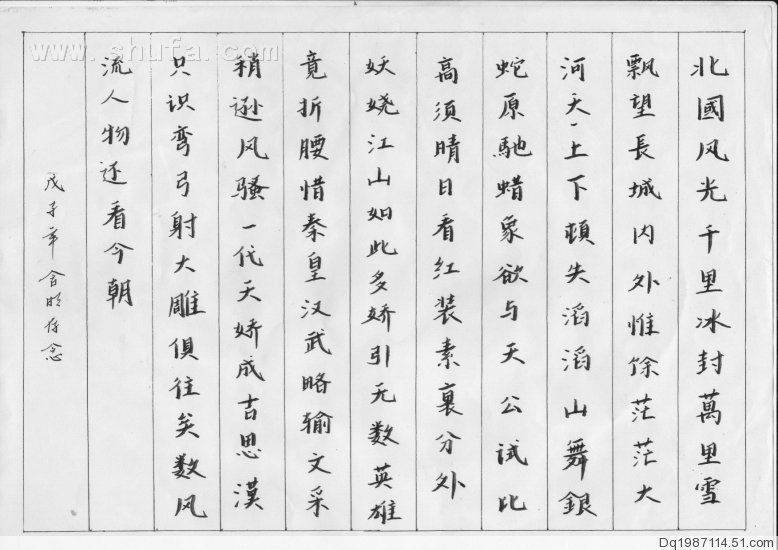 www.shufa.com
北國风光千里冰封萬里雪
飘望長城内外惟馀茫茫大
河天上下顿失滔滔山舞銀
蛇原馳蜡象欲与天公试比
高须晴日看红装素裹分外
妖娆江山如此多娇引无数英雄
竟折腰惜秦皇汉武略输文采
稍逊风骚一代天娇成吉思漠
只识弯弓射大雕俱往矣数风
流人物还看今朝
戊子年存念
Dq1987114.51.com